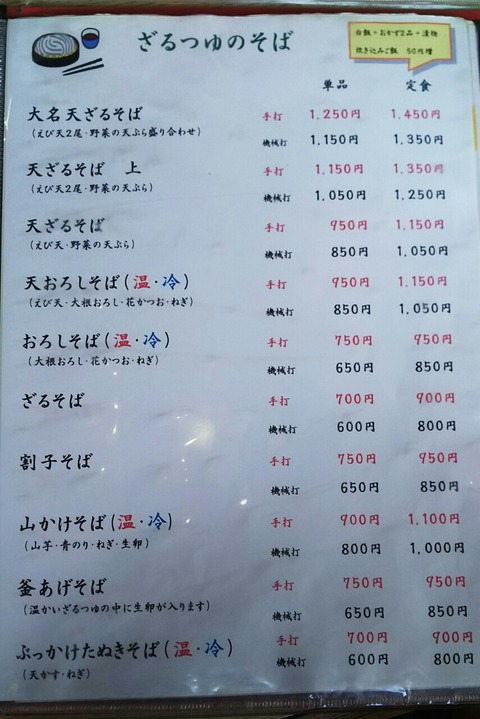 ざるつゆのそば
白飯+おかず2品+漬物
炊き込みご飯 50円増
単品 定食
大名天ざるそば 手打 1,250円 1,450円
(えび天2尾・野菜の天ぷら盛り合わせ) 機械打 1,150円 1,350円
天ざるそば 上 手打 1,150円 1,350円
(えび天2尾・野菜の天ぷら) 機械打 1,050円 1,250円
天ざるそば 手打 950円 1,150円
(えび天・野菜の天ぷら) 機械打 850円 1,050円
天おろしそば(温・冷) 手打 950円 1,150円
(えび天・大根おろし・花かつお・ねぎ) 機械打 850円 1,050円
おろしそば(温・冷) 手打 750円 950円
(大根おろし・花かつお・ねぎ) 機械打 650円 850円
ざるそば 手打 700円 900円
機械打 600円 800円
割子そば 手打 750円 950円
機械打 650円 850円
山かけそば(温・冷) 手打 900円 1,100円
(山芋・青のり・ねぎ・生卵) 機械打 800円 1,000円
釜あげそば 手打 750円 950円
(温かいざるつゆの中に生卵が入ります) 機械打 650円 850円
ぶっかけたぬきそば(温・冷) 手打 700円 900円
(天かす・ねぎ) 機械打 600円 800円